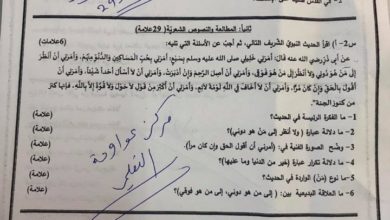 ثانياً: المطالعة والنصوص الشعرية (29علامة)
س2- أ) اقرأ الحديث النبوي الشريف التالي، ثم أجب عن الأسئلة التي تليه: (6علامات)
عن أبي ذر رضي الله عنه قال: أمرني خليلي صلى الله عليه وسلم بسبع: أمرني بحب المساكين والدنو منهم، وأمرني أن أنظر
إلى من هو دوني ولا أنظر إلى من هو فوقي، وأمرني أن أصل الرحم وإن أدبرت، وأمرني أن لا أسأل أحداً شيئاً، وأمرني أن
أقول الحق وإن كان مراً، وأمرني أن لا أخاف في الله لومة لائم، وأمرني أن أكثر من قول لا حول ولا قوة إلا بالله، فإنها كنز من
كنوز الجنة".
1- ما الفكرة الرئيسة في الحديث؟ (علامة)
2- ما دلالة عبارة (ولا أنظر إلى من هو دوني)؟ (علامة)
3- وضح الصورة الفنية في: (أمرني أن أقول الحق وإن كان مراً). (علامة)
4- ما دلالة تكرار عبارة (خير من الدنيا وما عليها)؟ (علامة)
5- ما نوع (من) الواردة في الحديث؟ (علامة)
6- ما العلاقة البديعية بين: (إلى من هو دوني، إلى من هو فوقي)؟ (علامة)
مركز عواودة
التعليمي